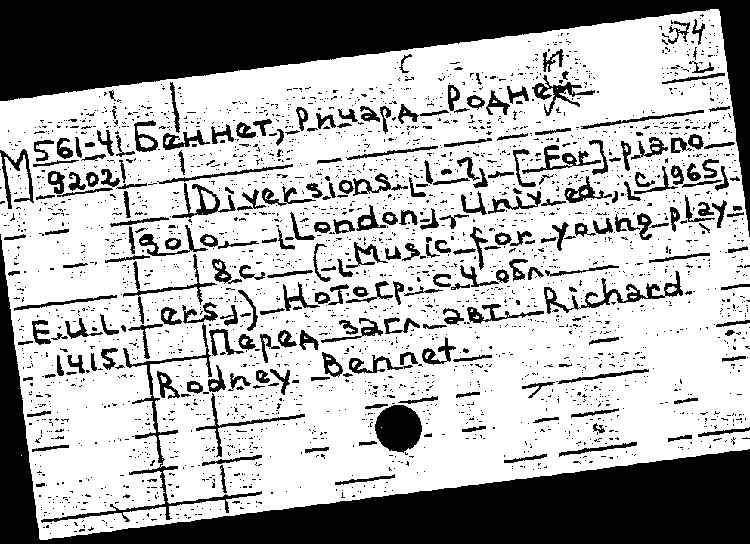 574
С
М 561-4 Беннет, Ричард Родней
9202
Diversions [1-7] [For] piano
solo. [London], Univ. ed., [c. 1965]
8 с. ([Music for young play-
ers]) Нотогр.: с. 4 обл.
E.U.L. Перед загл. авт.: Richard
14151
Rodney Bennet.